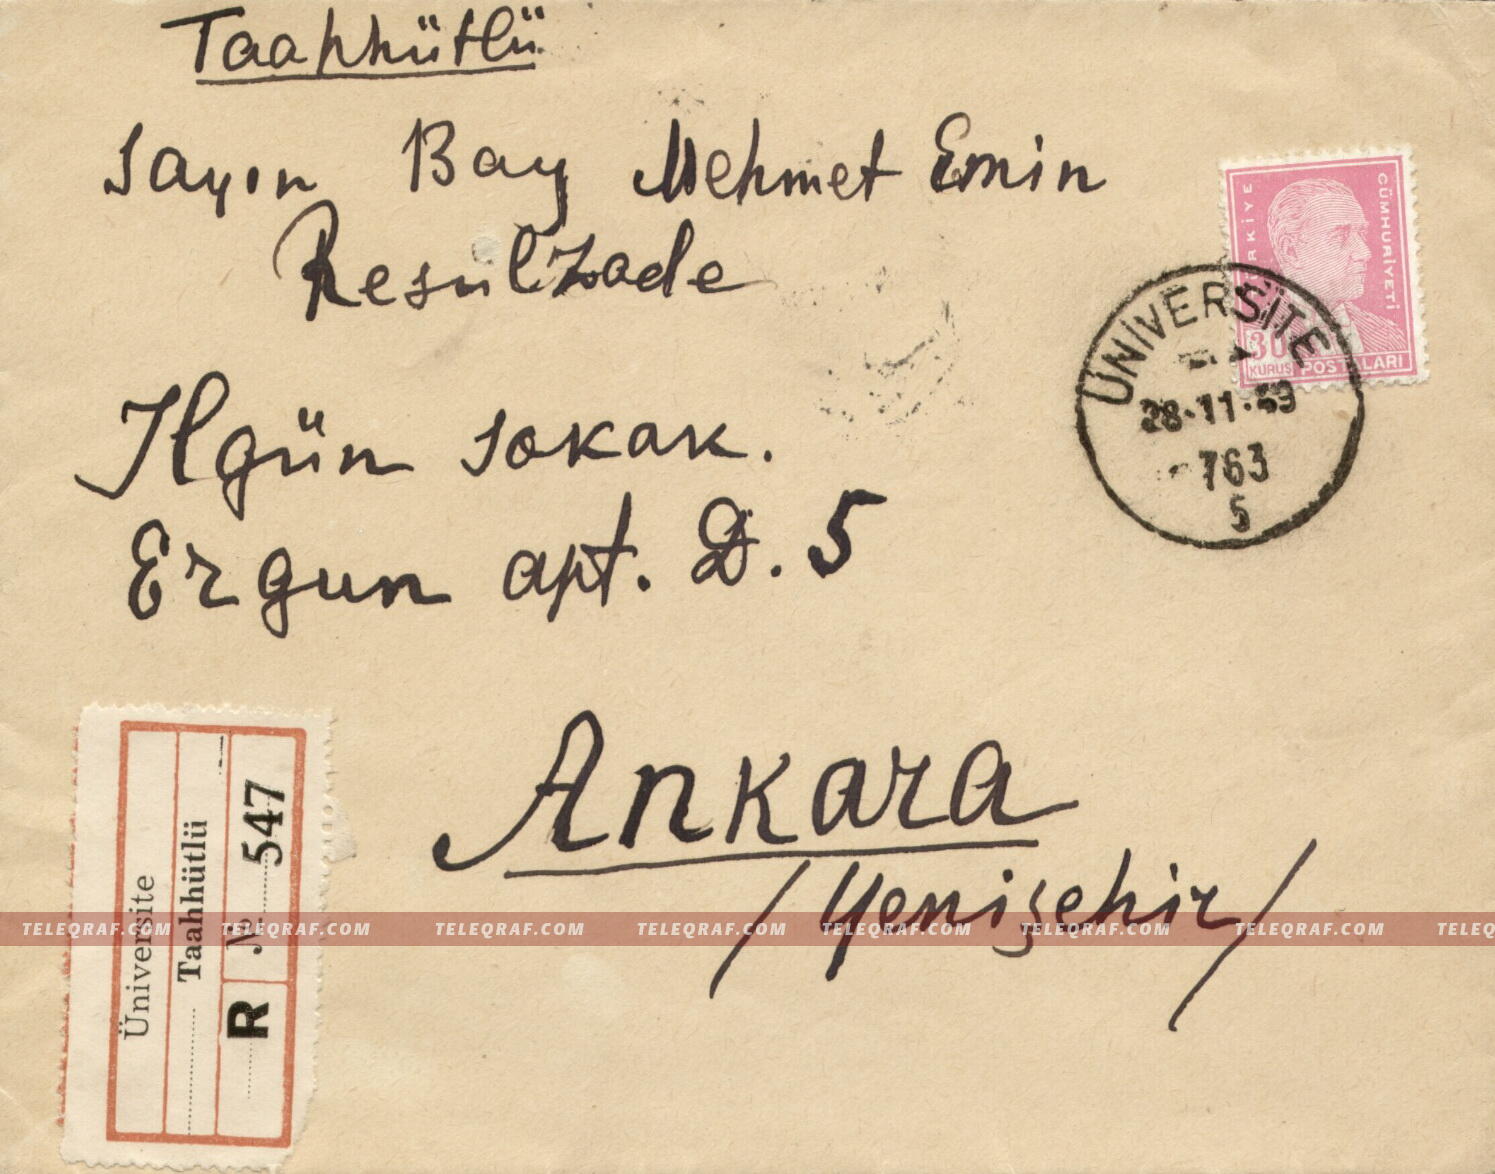 Taahhütlü
Sayın Bay Mehmet Emin
Resülzade
Ilgün sokak.
Ergun apt. D. 5
Ankara
/Yenişehir/
TÜRKİYE CÜMHURİYETİ
30
KURUŞ POSTALARI
ÜNİVERSİTE
28·11·49
763
5
Üniversite
Taahhütlü
R № 547
TELEQRAF.COM TELEQRAF.COM TELEQRAF.COM TELEQRAF.COM TELEQRAF.COM TELEQRAF.COM TELEQRAF.COM TELEQ